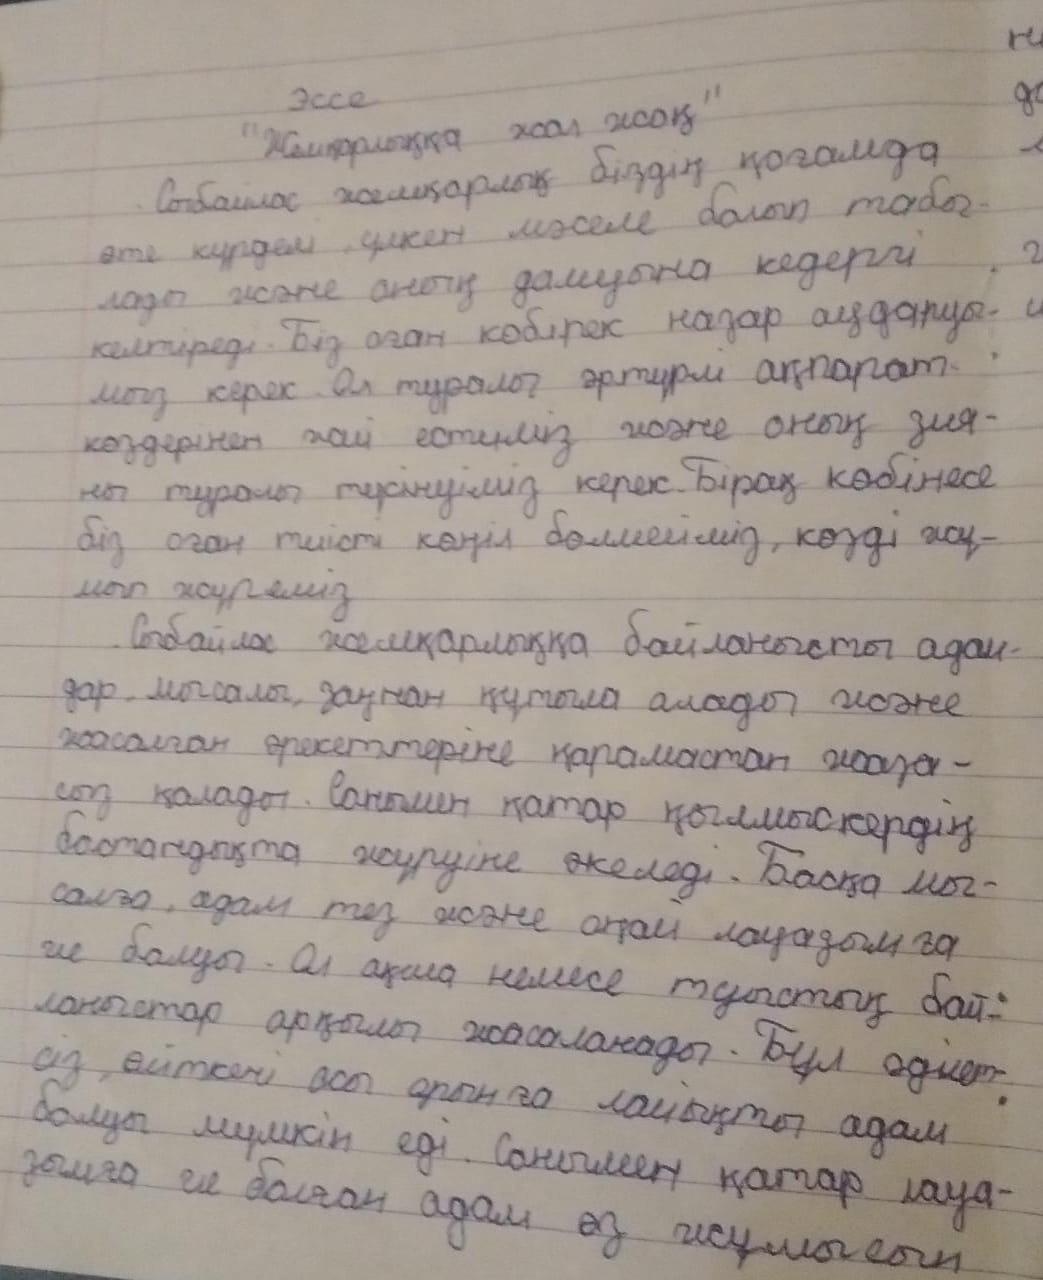 Эссе
"Жемқорлыққа жол жоқ"
Сыбайлас жемқорлық біздің қоғамда
өте күрделі үлкен мәселе болып табы-
лады және оның дамуына кедергі
келтіреді. Біз оған көбірек назар аударуы-
мыз керек. Ол туралы әртүрлі ақпарат
көздерінен жиі естиміз және оның зия-
ны туралы түсінуіміз керек. Бірақ көбінесе
біз оған тиісті көңіл бөлмейміз, көзді жұ-
мып жүреміз
Сыбайлас жемқарлыққа байланысты адам-
дар, мысалы, заңнан құтыла алады және
жасалған әрекеттеріне қарамастан жаза-
сыз қалады. Сонымен қатар қылмыскердің
бостандықта жүруіне әкеледі. Басқа мы-
салға, адам тез және оңай лауазымға
ие болуы. Ол ақша немесе туыстық бай-
ланыстар арқылы жасаланады. Бұл әділет-
сіз, өйткені осы орынға лайықты адам
болуы мүмкін еді. Сонымен қатар лауа-
зымға ие болған адам өз жұмысын